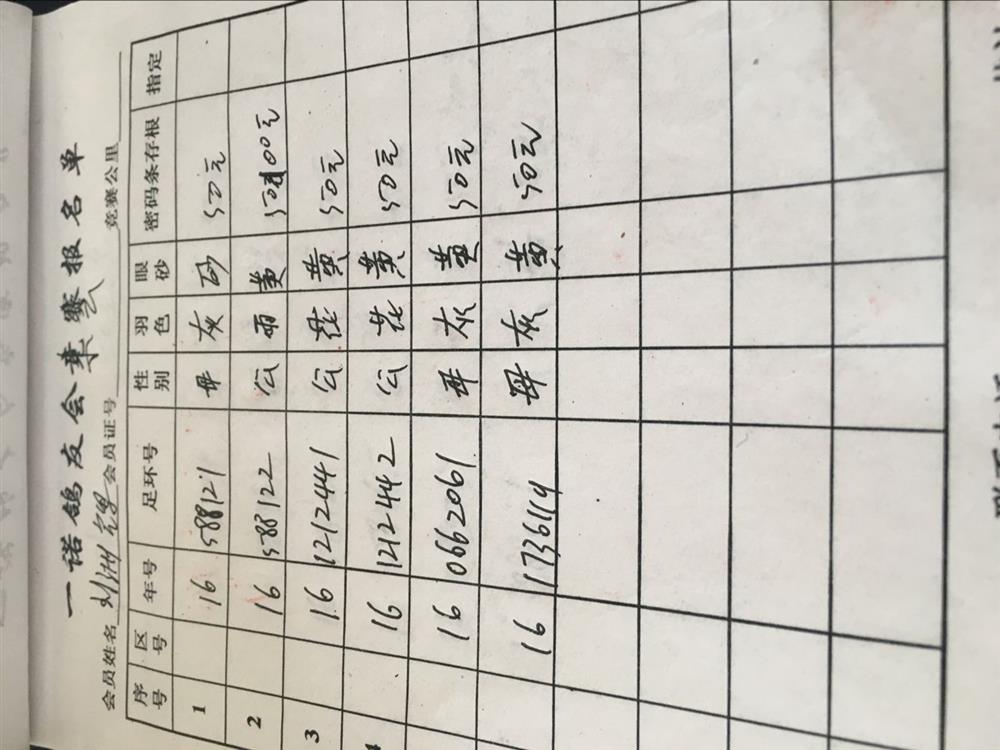 一诺鸽友会集赛报名单
会员姓名 刘洲 会员证号 竞赛公里
序号 区号 年号 足环号 性别 羽色 眼砂 密码条存根 指定
1 16 588121 母 灰 砂 50元
2 16 588122 公 雨 黄 100元
3 16 1212441 公 花 黄 50元
4 16 1212442 公 花 黄 50元
16 0662061 母 灰 黄 50元
16 1736114 母 灰 黄 50元